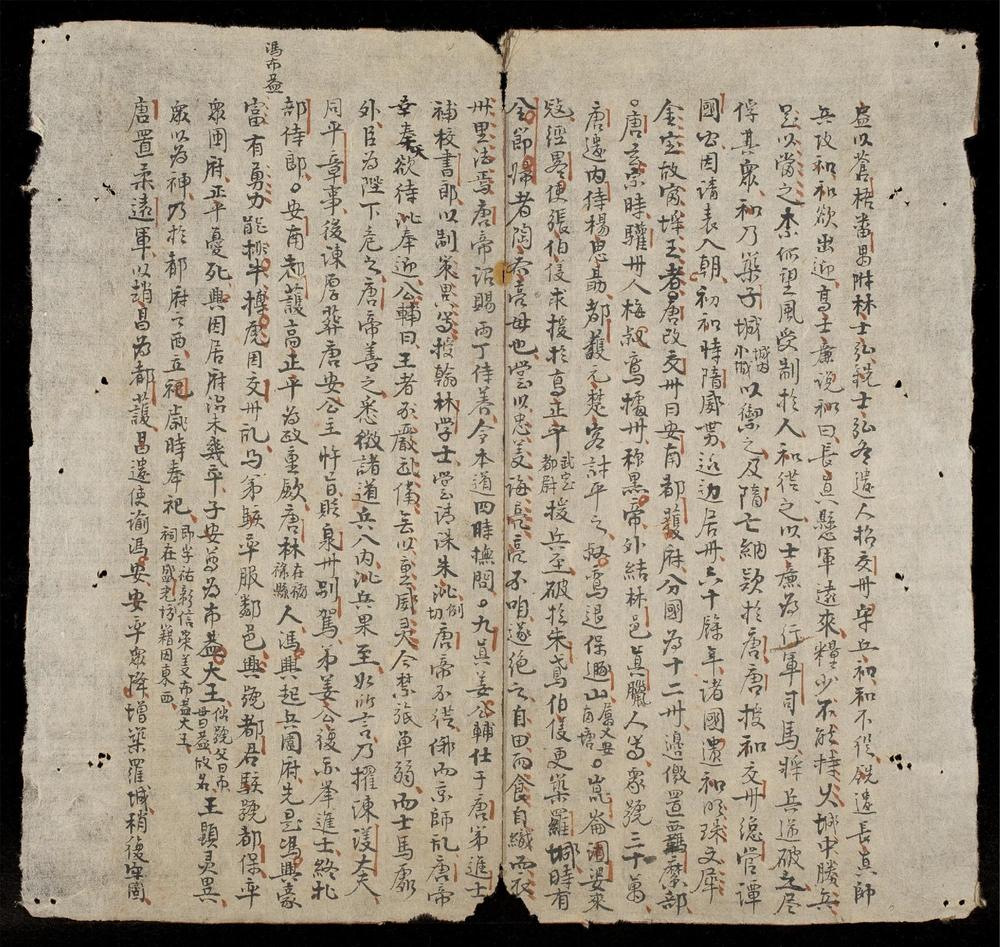 盎以蒼梧番禺附林士弘銑士弘各遣人招交州丘和初和不從銑遣長真師
兵攻和和欲出迎高士廉說和曰長真懸軍遠來糧少不能持久城中勝兵
足以當之柰何望風受制於人和從之以士廉為行軍司馬將兵逆破之尽
俘其眾和乃築子城城内小城以禦之及隋亡納欵於唐唐授和交州總管譚
國公因請表入朝初和時隋威男近边居州六十餘年諸國遺和明珠文犀
金宝故富埒王者唐改交州曰安南都護府分國為十二州邊徼置羈縻部
唐玄宗時驩州人梅叔鸞據州称黑帝外結林邑真臘人等眾號三十萬
唐遣内侍楊思勗都護元楚客討平之叔鸞退保山崑崙闍婆來
寇經畧使張伯儀求援於高正平武定都尉援兵至破於朱鳶伯儀更築羅城時有
全節婦者陶齐亮母也嘗以忠義誨亮亮不听遂絶之自田而食自織而衣
州里法焉唐帝詔賜丙丁侍養令本道四時撫問九真姜公輔仕于唐第進士
補校書郎以制策異等授翰林学士嘗請誅朱泚唐帝不從俄而京師乱唐帝
幸奉天欲待泚奉迎公輔曰王者不嚴武備無以重威灵今禁旅單弱而士馬處
外臣為陛下危之唐帝善之悉徵諸道兵入内泚兵果至如所言乃擢諫議大夫
同平章事後諫厚葬唐安公主忤旨貶泉州别駕弟姜公復亦挙進士終北
部侍郎安南都護高正平為政重歛唐林在福祿縣人馮興起兵圍府先是馮興豪
富有勇力能排牛搏虎因交州乱与弟駭平服鄰邑興號都君駭號都保卒
眾圍府正平憂死興因居府治未幾卒子安尊為布盖大王俗號父曰布母曰盖故名王顕灵異
眾以為神乃於都府之西立祠歲時奉祀即孚祐彰信崇義布盖大王祠在盛光坊籍田東西
唐置柔遠軍以趙昌為都護昌遣使諭馮安安率眾降增築羅城稍後牢固
馮布盖